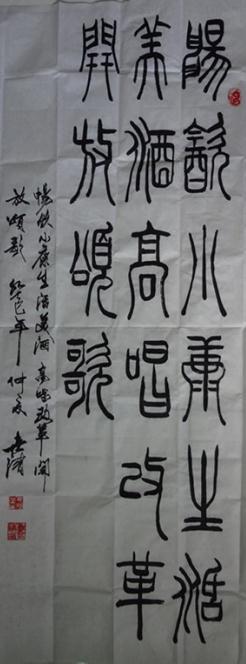 暢飲小康生活
美酒高唱改革
開放頌歌
暢饮小康生活美酒高唱改革開
放頌歌 年仲夏